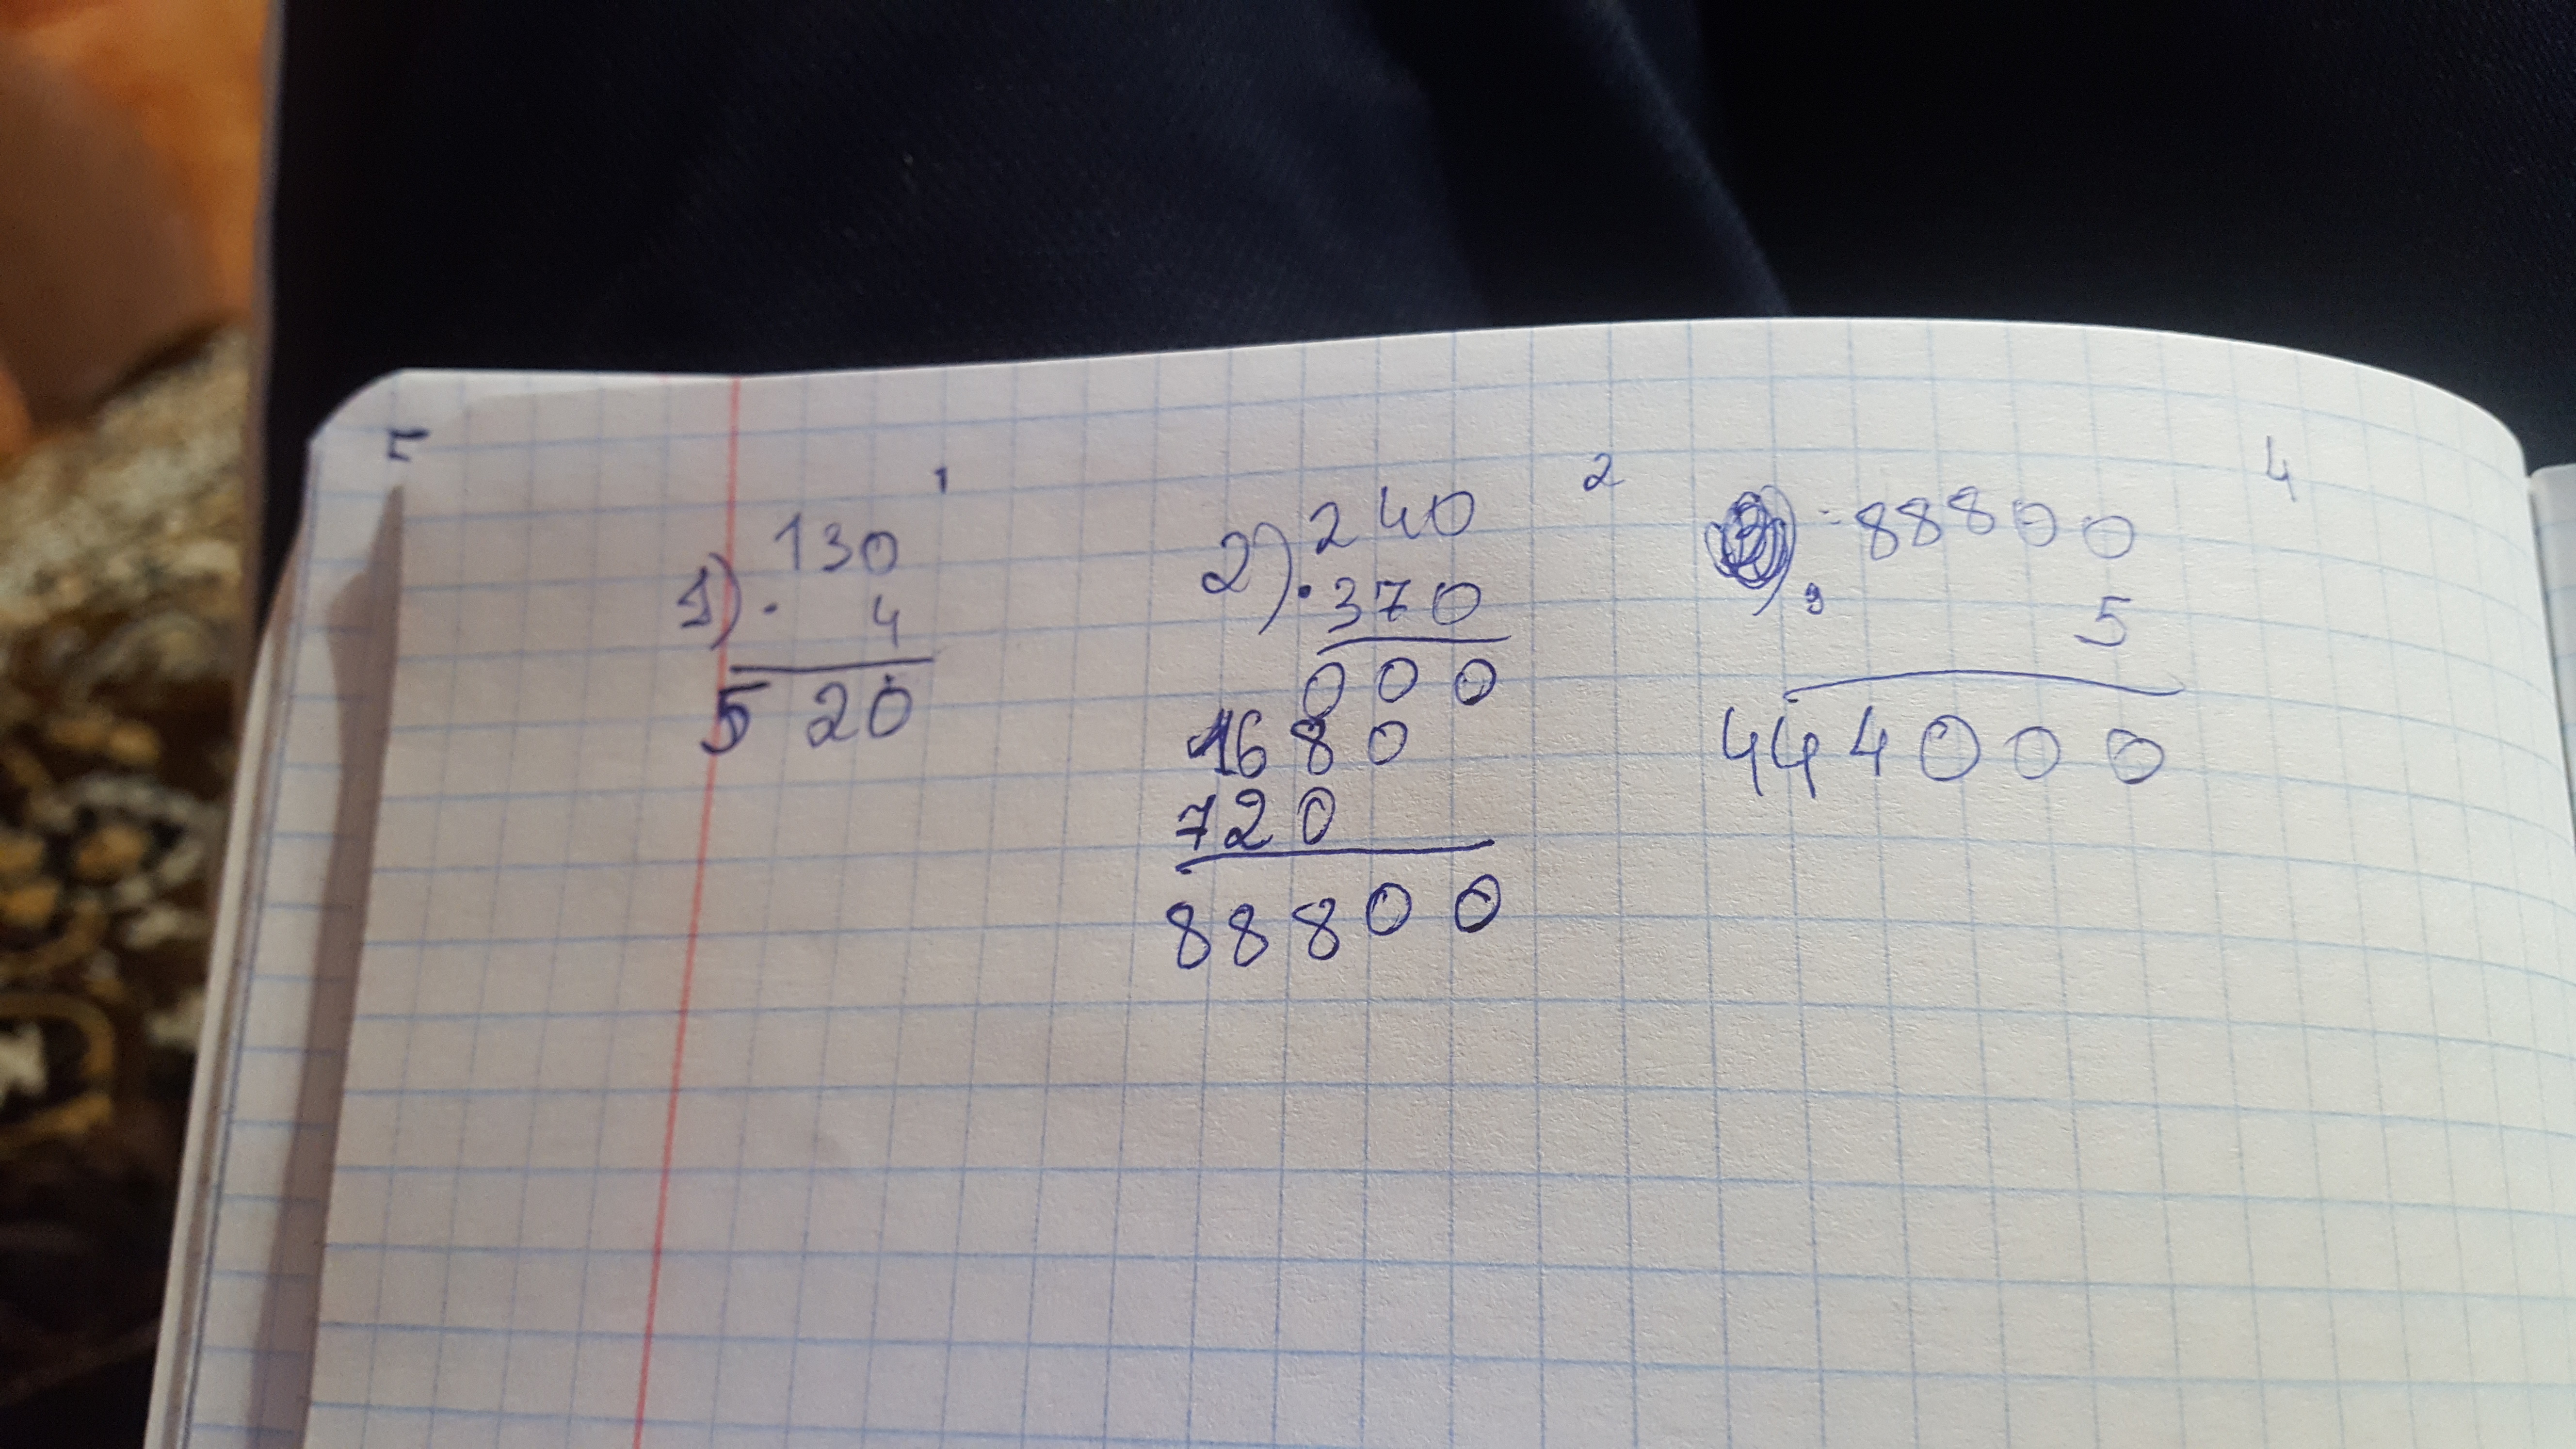 1
1) 130
· 4
520
2
2) 240
· 370
000
1680
720
88800
4
) 88800
· 5
444000